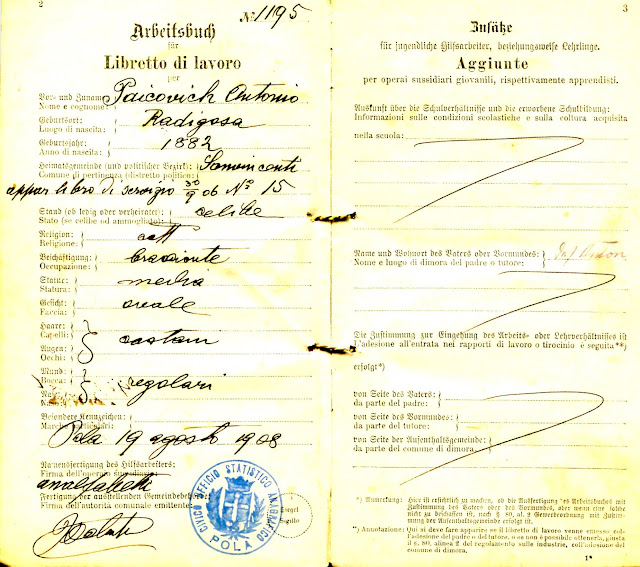 2
№ 1195
Arbeitsbuch
für
Libretto di lavoro
per
Vor- und Zuname
Nome e cognome: Paicovich Antonio
Geburtsort:
Luogo di nascita: Radigosa
Geburtsjahr:
Anno di nascita: 1882
Heimatsgemeinde (und politischer Bezirk):
Comune di pertinenza (distretto politico): Sanvincenti
appar libro di servizio 30/9 06 N° 15
Stand (ob ledig oder verheiratet):
Stato (se celibe od ammogliato): celibe
Religion:
Religione: catt
Beschäftigung:
Occupazione: bracciante
Statur:
Statura: media
Gesicht:
Faccia: ovale
Haare:
Capelli: castani
Augen:
Occhi:
Mund:
Bocca: regolari
Besondere Kennzeichen:
Pola 19 agosto 1908
Namensfertigung des Hilfsarbeiters:
Firma dell'operaio sussidiario:
analfabeta
Fertigung der ausstellenden Gemeindebehörde:
Firma dell'autorità comunale emittente:
CIVICO UFFICIO STATISTICO ANAGRAFICO
POLA
Siegel
Sigillo
3
Zusätze
für jugendliche Hilfsarbeiter, beziehungsweise Lehrlinge.
Aggiunte
per operai sussidiari giovanili, rispettivamente apprendisti.
Auskunft über die Schulverhältnisse und die erworbene Schulbildung:
Informazioni sulle condizioni scolastiche e sulla coltura acquisita
nella scuola:
Name und Wohnort des Vaters oder Vormundes:
Nome e luogo di dimora del padre o tutore:
Die Zustimmung zur Eingehung des Arbeits- oder Lehrverhältnisses ist
L'adesione all'entrata nei rapporti di lavoro o tirocinio è seguita**)
erfolgt*)
von Seite des Vaters:
da parte del padre:
von Seite des Vormundes:
da parte del tutore:
von Seite der Aufenthaltsgemeinde:
da parte del comune di dimora:
*) Anmerkung: Hier ist ersichtlich zu machen, ob die Ausfertigung des Arbeitsbuches mit
Zustimmung des Vaters oder des Vormundes, oder wenn eine solche
nicht zu beschaffen ist, nach § 80, al. 2 Gewerbeordnung mit Zustim-
mung der Aufenthaltsgemeinde erfolgt ist.
**) Annotazione: Qui si deve fare apparire se il libretto di lavoro venne emesso col-
l'adesione del padre o del tutore, o se non è possibile ottenerla, giusta
il §. 80, alinea 2 del regolamento sulle industrie, coll'adesione del
comune di dimora.
1*